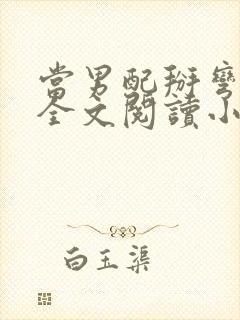 當男配掰彎
全文閱讀小
白玉渠